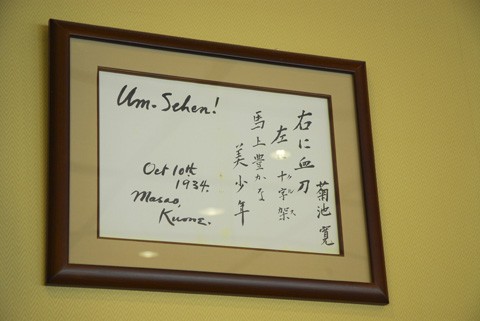 Um-Sehen!
Oct 10th
1934.
Masao,
Kume.
右に血刀
左十字架
クルス
馬上豊かな
美少年
菊池寛